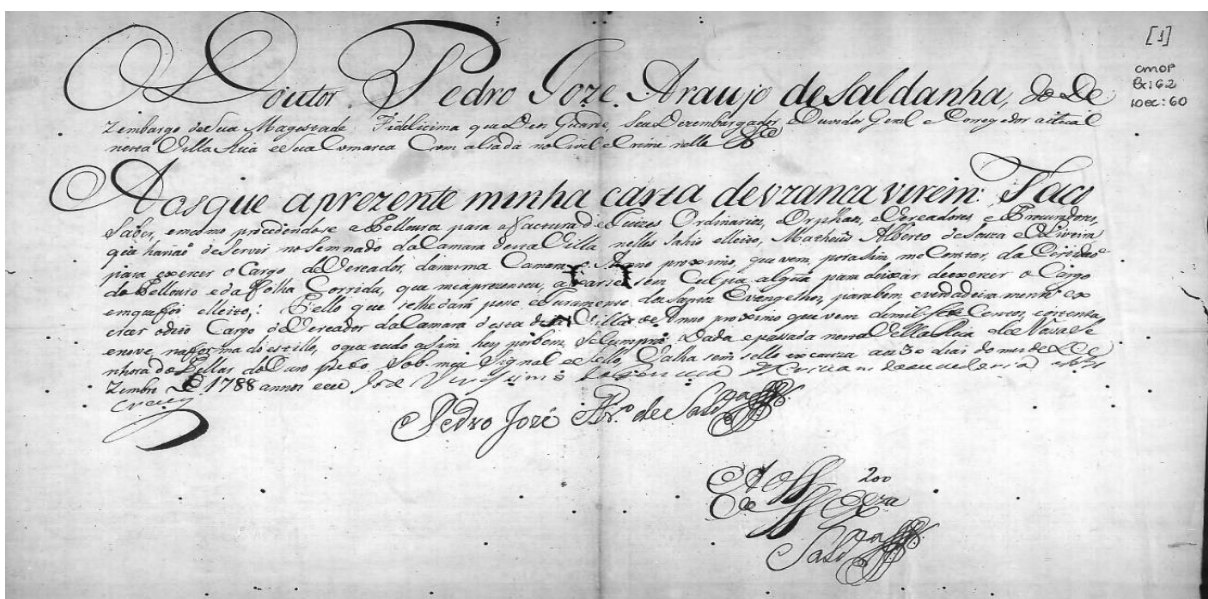 [1]
CMOP
Cx: 62
Doc: 60
O Doutor Pedro Joze Araujo de Saldanha, do De
Zembargo de Sua Magestade Fidelicima que Deos Guarde, Seu Dezembargador, e Ouvidor Geral e Corregedor actual
nesta Villa Rica e Sua Comarca Com alsada no Civel e Crime nella &ca
Aos que a prezente minha carta de vzanca virem: Faço
Saber, em como procedendose a Pellouros para a Factura de Juizes Ordinarios, e Orphãos, e Vereadores e Procuradores,
que hariaõ de Servir no Semnado da Camara desta Villa nelles Sahio elleito, Matheus Alberto de Souza e Oliveira
para exercer o Cargo de Vereador, da mesma Camara o Anno proximo, que vem, por asim me Constar, da Certidaõ
do Pellouro e da Folha Corrida, que me aprezentou, sem Culpa algũa para deixar de exercer o Cargo
em que foi elleito; Pello que selhe dará posse e Juramento dos Santos Evangelhos, para bem, e verdadeira mente ex
ercer o dito Cargo de Vereador da Camara desta Villa o Anno proximo que vem de mil Sete Centos, e oitenta
e nove, na forma do estillo, o que tudo asim hey por bem, Se Cumpra. Dada e passada nesta Villa Rica de Nossa Se
nhora do Pillar do Ouro Preto, Sob meu Signal e Sello Valha sem Sello ex cauza aos 30 dias do mes de De
Zembro de 1788 annos e eu Joze Verissimo da Fonceca
Pedro José Ar.º de Sald.ª
200
Sald.ª